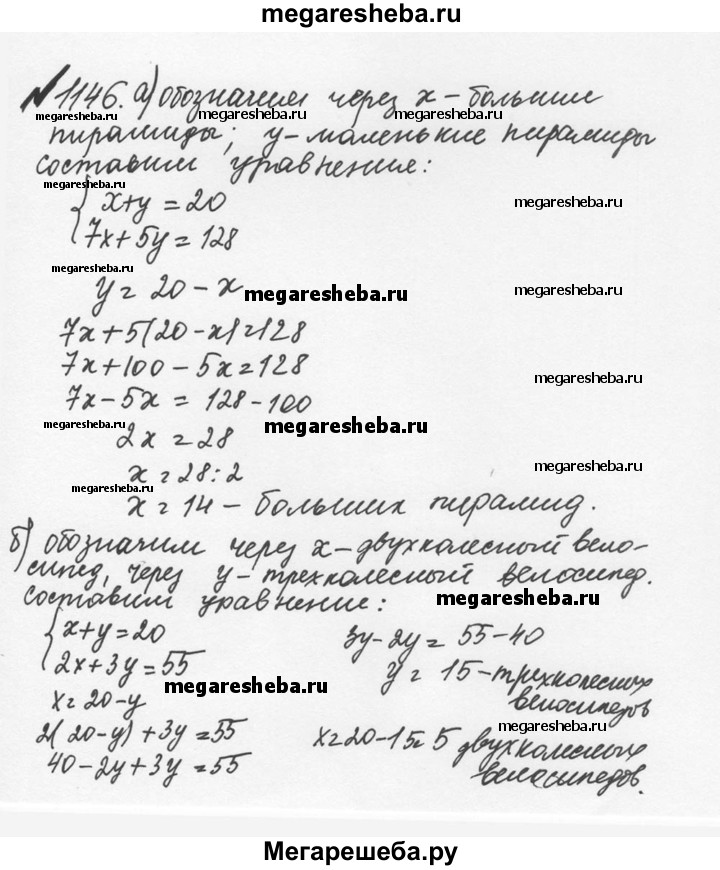 megaresheba.ru
№1146. а) обозначим через x – большие
megaresheba.ru megaresheba.ru megaresheba.ru
пирамиды; y – маленькие пирамиды
составим уравнение:
megaresheba.ru
{ x+y = 20
megaresheba.ru
7x+5y = 128
megaresheba.ru
y = 20 – x
megaresheba.ru
megaresheba.ru
7x+5(20-x)=128
7x+100-5x=128
megaresheba.ru
7x-5x = 128-100
megaresheba.ru
megaresheba.ru
2x = 28
x = 28:2
megaresheba.ru
megaresheba.ru
x = 14 – больших пирамид.
б) обозначим через x – двухколесный вело-
megaresheba.ru
сипед, через y – трехколесный велосипед.
составим уравнение:
megaresheba.ru
{ x+y=20
2x+3y=55
x=20-y
megaresheba.ru
2(20-y)+3y=55
40-2y+3y=55
3y-2y= 55-40
y = 15 – трехколесных
велосипедов
megaresheba.ru
x=20-15=5 двухколесных
велосипедов.
Мегарешеба.ру